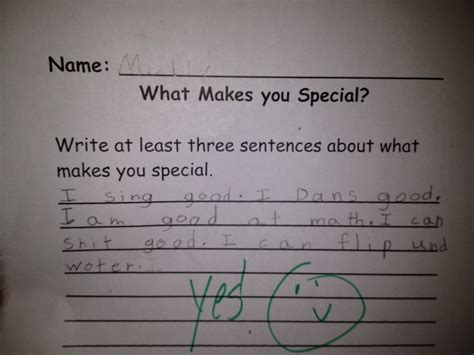 Name: Molly
What Makes you Special?
Write at least three sentences about what
makes you special.
I sing good. I Dans good.
I am good at math. I can
shit good. I can flip und
woter.
yes!